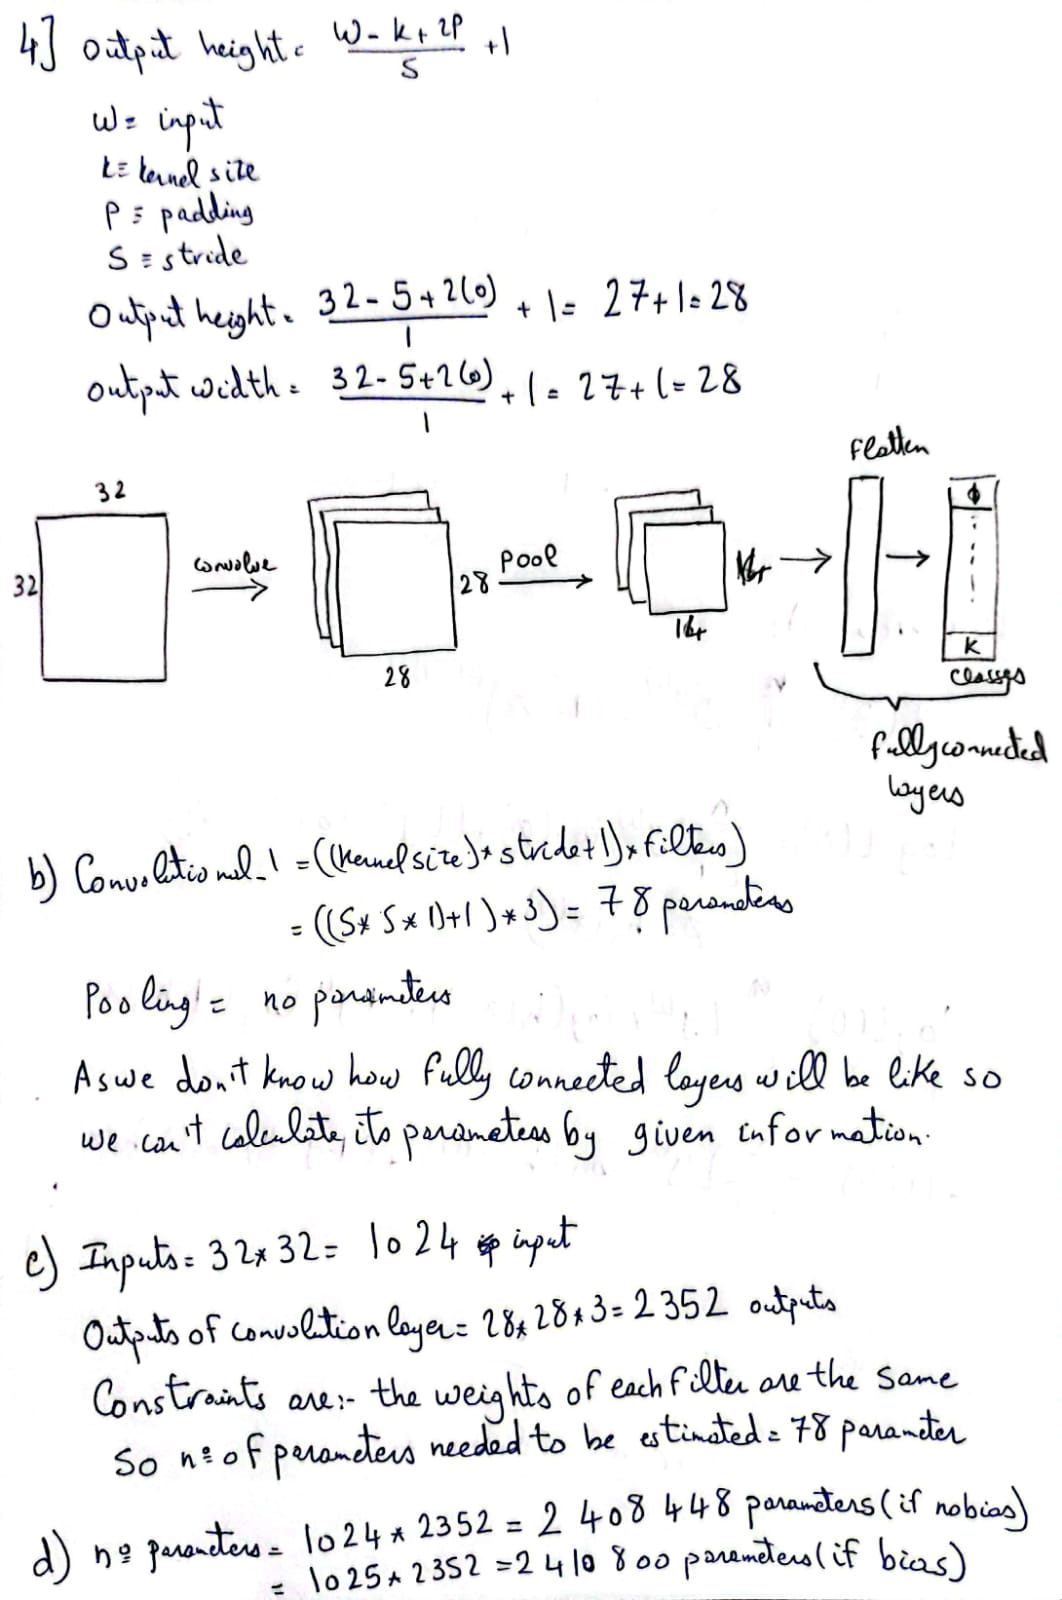 4] Output height = W - k + 2P / S + 1
W = input
k = kernel size
P = padding
S = stride
Output height = 32 - 5 + 2(0) / 1 + 1 = 27 + 1 = 28
output width = 32 - 5 + 2(0) / 1 + 1 = 27 + 1 = 28
Flatten
32
32
convolve
28
28
Pool
14
14
ϕ
K
classes
fully connected
layers
b) Convolutional_1 = ((kernel size) * stride + 1) * filters)
= ((5 * 5 * 1) + 1) * 3) = 78 parameters
Pooling = no parameters
As we don't know how fully connected layers will be like so
we can't calculate its parameters by given information.
c) Inputs = 32 * 32 = 1024 input
Outputs of convolution layer = 28 * 28 * 3 = 2352 outputs
Constraints are :- the weights of each filter are the same
So nº of parameters needed to be estimated = 78 parameter
d) nº parameters = 1024 * 2352 = 2 408 448 parameters (if no bias)
= 1025 * 2352 = 2 410 800 parameters (if bias)